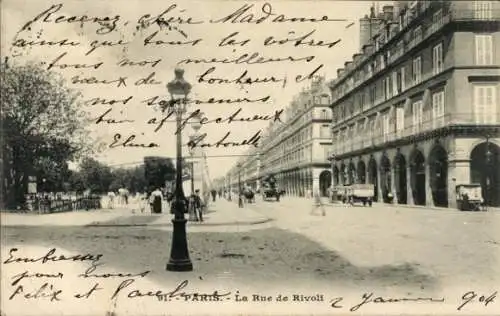 Recevez, chère Madame
ainsi que tous les vôtres
tous nos meilleurs
vœux de bonheur et
nos souvenirs
bien affectueux
Antonelle
Embrasse
pour nous
Félix et Pauline.
91. - PARIS. - La Rue de Rivoli
2 Janvier 1904